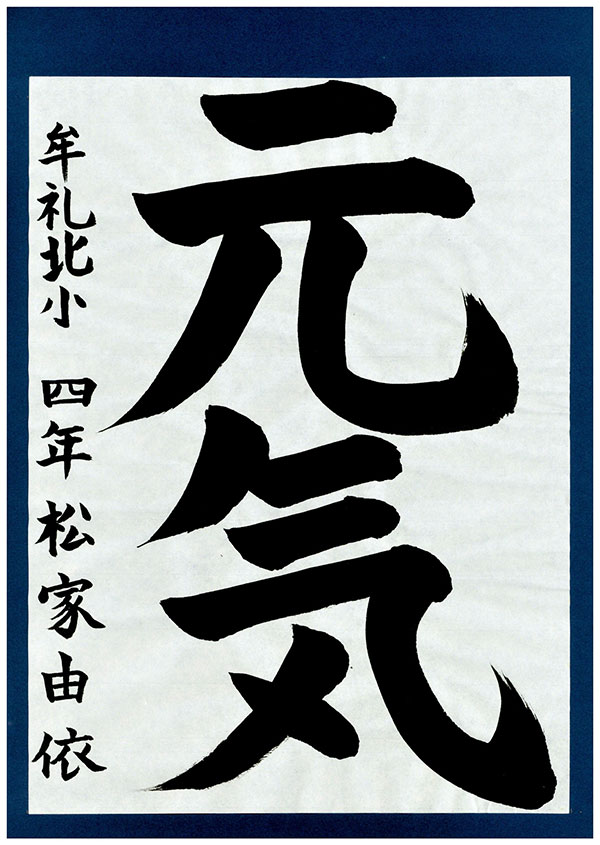 元気
牟礼北小 四年 松家由依